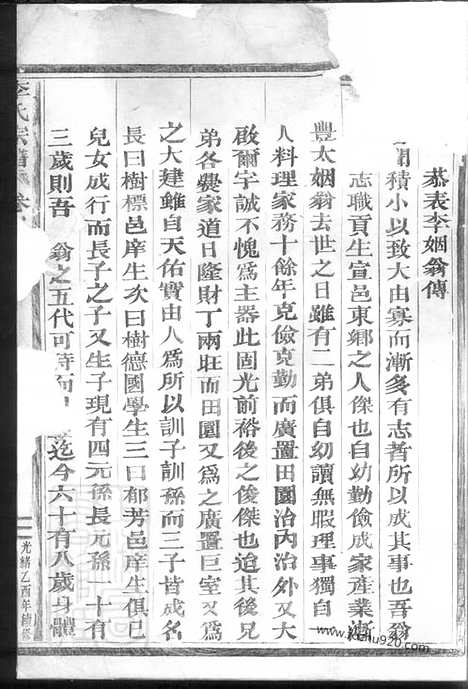 恭表李姻翁傳
積小以致大由寡而漸多有志者所以成其事也吾翁
志職貢生宣邑東鄉之人傑也自幼勤儉成家產業漸
豐太姻翁去世之日雖有二弟俱自幼讀無暇理事獨自一
人料理家務十餘年克儉克勤而廣置田園治內治外又大
啟爾宇誠不愧為主器此固光前裕後之俊傑也迨其後兄
弟各爨家道日隆財丁兩旺而田園又為之廣置巨室又為
之大建雖自天佑實由人為所以訓子訓孫而三子皆成名
長曰樹標邑庠生次曰樹德國學生三曰郁芳邑庠生俱已
兒女成行而長子之子又生子現有四元孫長元孫一十有
三歲則吾 翁之五代可待而 迄今六十有八歲身體
李氏宗譜 卷
光緒乙酉年續修
www.jiapu920.com